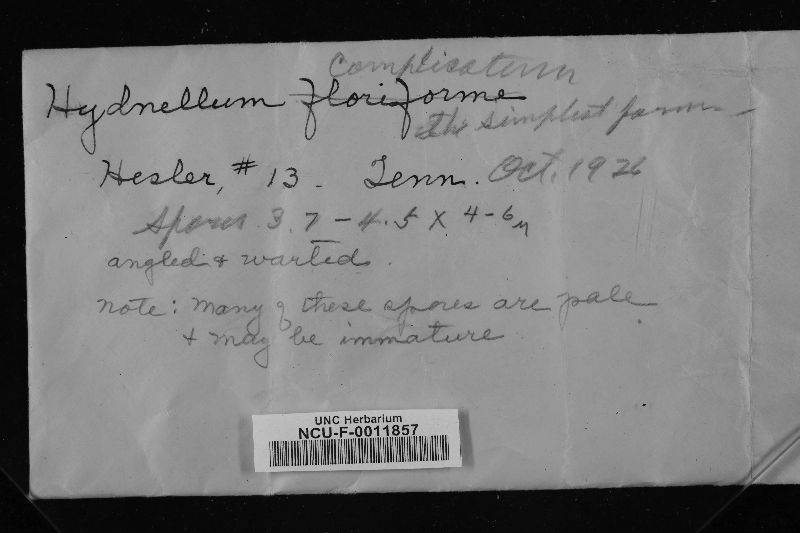 Complicatum
Hydnellum floriforme
the simplest form
Hesler, # 13. Tenn. Oct. 1926
Spores 3.7 - 4.5 X 4-6 µ
angled & warted.
note: Many of these spores are pale
+ may be immature
UNC Herbarium
NCU-F-0011857